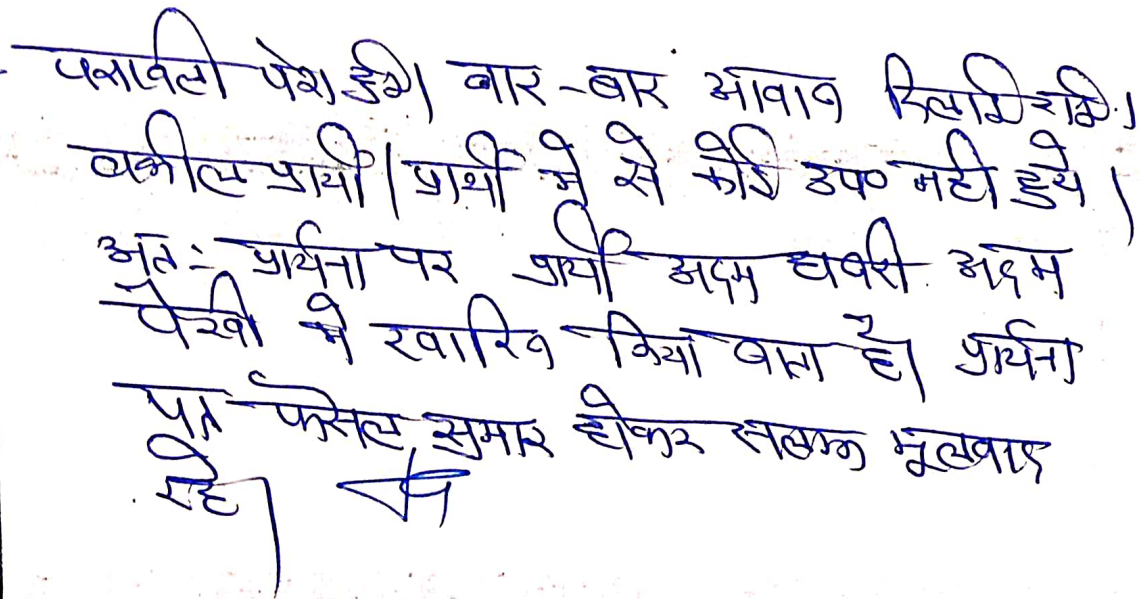 पत्रावली पेश हुई। बार-बार आवाज दिलाई गई।
वकील प्रार्थी/प्रार्थी मे से कोई उप० नही हुये।
अत:- प्रार्थना पत्र प्रार्थी अदम हाजरी अदम
पैरवी मे खारिज किया जाता है। प्रार्थना
पत्र फैसल सुमार होकर सलग्न मूलवाद
रहे।